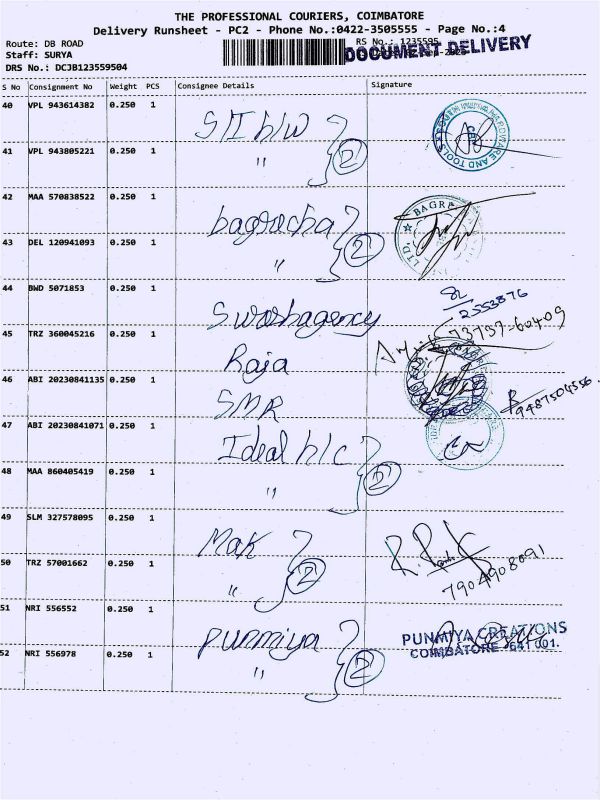 THE PROFESSIONAL COURIERS, COIMBATORE
Delivery Runsheet - PC2 - Phone No.:0422-3505555 - Page No.:4
Route: DB ROAD
RS No.: 1235595
Staff: SURYA
DOCUMENT DELIVERY
DRS No.: DCJB123559504
S No Consignment No Weight PCS Consignee Details Signature
40 VPL 943614382 0.250 1 S/I h/w
41 VPL 943805221 0.250 1 " 2
42 MAA 570838522 0.250 1 bagrecha
BAGR
LTD.
43 DEL 120941093 0.250 1 " 2
44 BWD 5071853 0.250 1 Swashagency
2553876
73737-60409
45 TRZ 360045216 0.250 1 Raja
46 ABI 20230841135 0.250 1 SMR
9487504556
47 ABI 20230841071 0.250 1 Ideal h/c
48 MAA 860405419 0.250 1 " 2
49 SLM 327578095 0.250 1 Mak
50 TRZ 57001662 0.250 1 " 2
7904908091
51 NRI 556552 0.250 1 punmiya
PUNMIYA CREATIONS
COIMBATORE 641 001.
52 NRI 556978 0.250 1 " 2